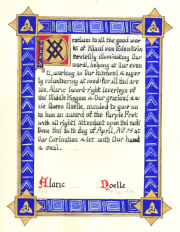 reclaim to all the good work
s of
terically illuminating Our
word, helping at Our even
ts, working in Our kitchens & eager
ly volunteering at need. for all this are
we Alaric sword-right Sovereign of
the Middle Kingdom & Our gracious & w
ise Queen Noelle, minded to give un
to him an award of the Purple Fret
with all rights attendant upon this rank
Done this 30 th day of April, AS 39 at
Our Coronation & set with Our hand
& seal.
Alaric Noelle